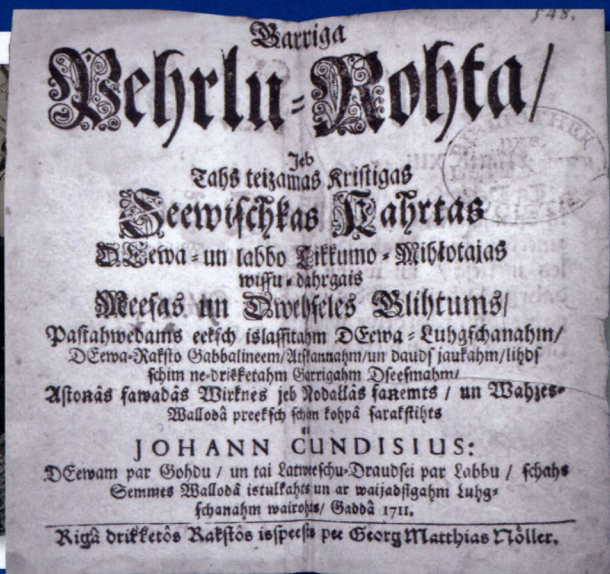 548.
Garriga
Pehrlu-Rohta/
Jeb
Tahs teizamas Kristigas
Seewischkas Kahrtas
DEewa-un labbo Tikkumo-Mihlotajas
wissu-dahrgais
Meesas un Dwehseles Glihtums/
Pastahwedams eeksch islassitahm DEewa-Luhgschanahm/
DEewa-Raksto Gabbalineem/Atsannahm/un daudf jaukahm/lihdf
schim ne-drikketahm Garrigahm Dseesmahm/
Astonâs sawadâs Wirknes jeb Nodallâs saņemts/ un Wahzes-
Wallodâ preeksch schim kohpâ sarakstihts
no
JOHANN CUNDISIUS:
DEewam par Gohdu/ un tai Latweeschu-Draudsei par Labbu/ schahs
Semmes Wallodâ istulkahts un ar waijadsigahm Luhg-
schanahm wairohts/ Gaddâ 1711.
Rigâ drikketôs Rakstôs isspeests pee Georg Matthias Nöller.